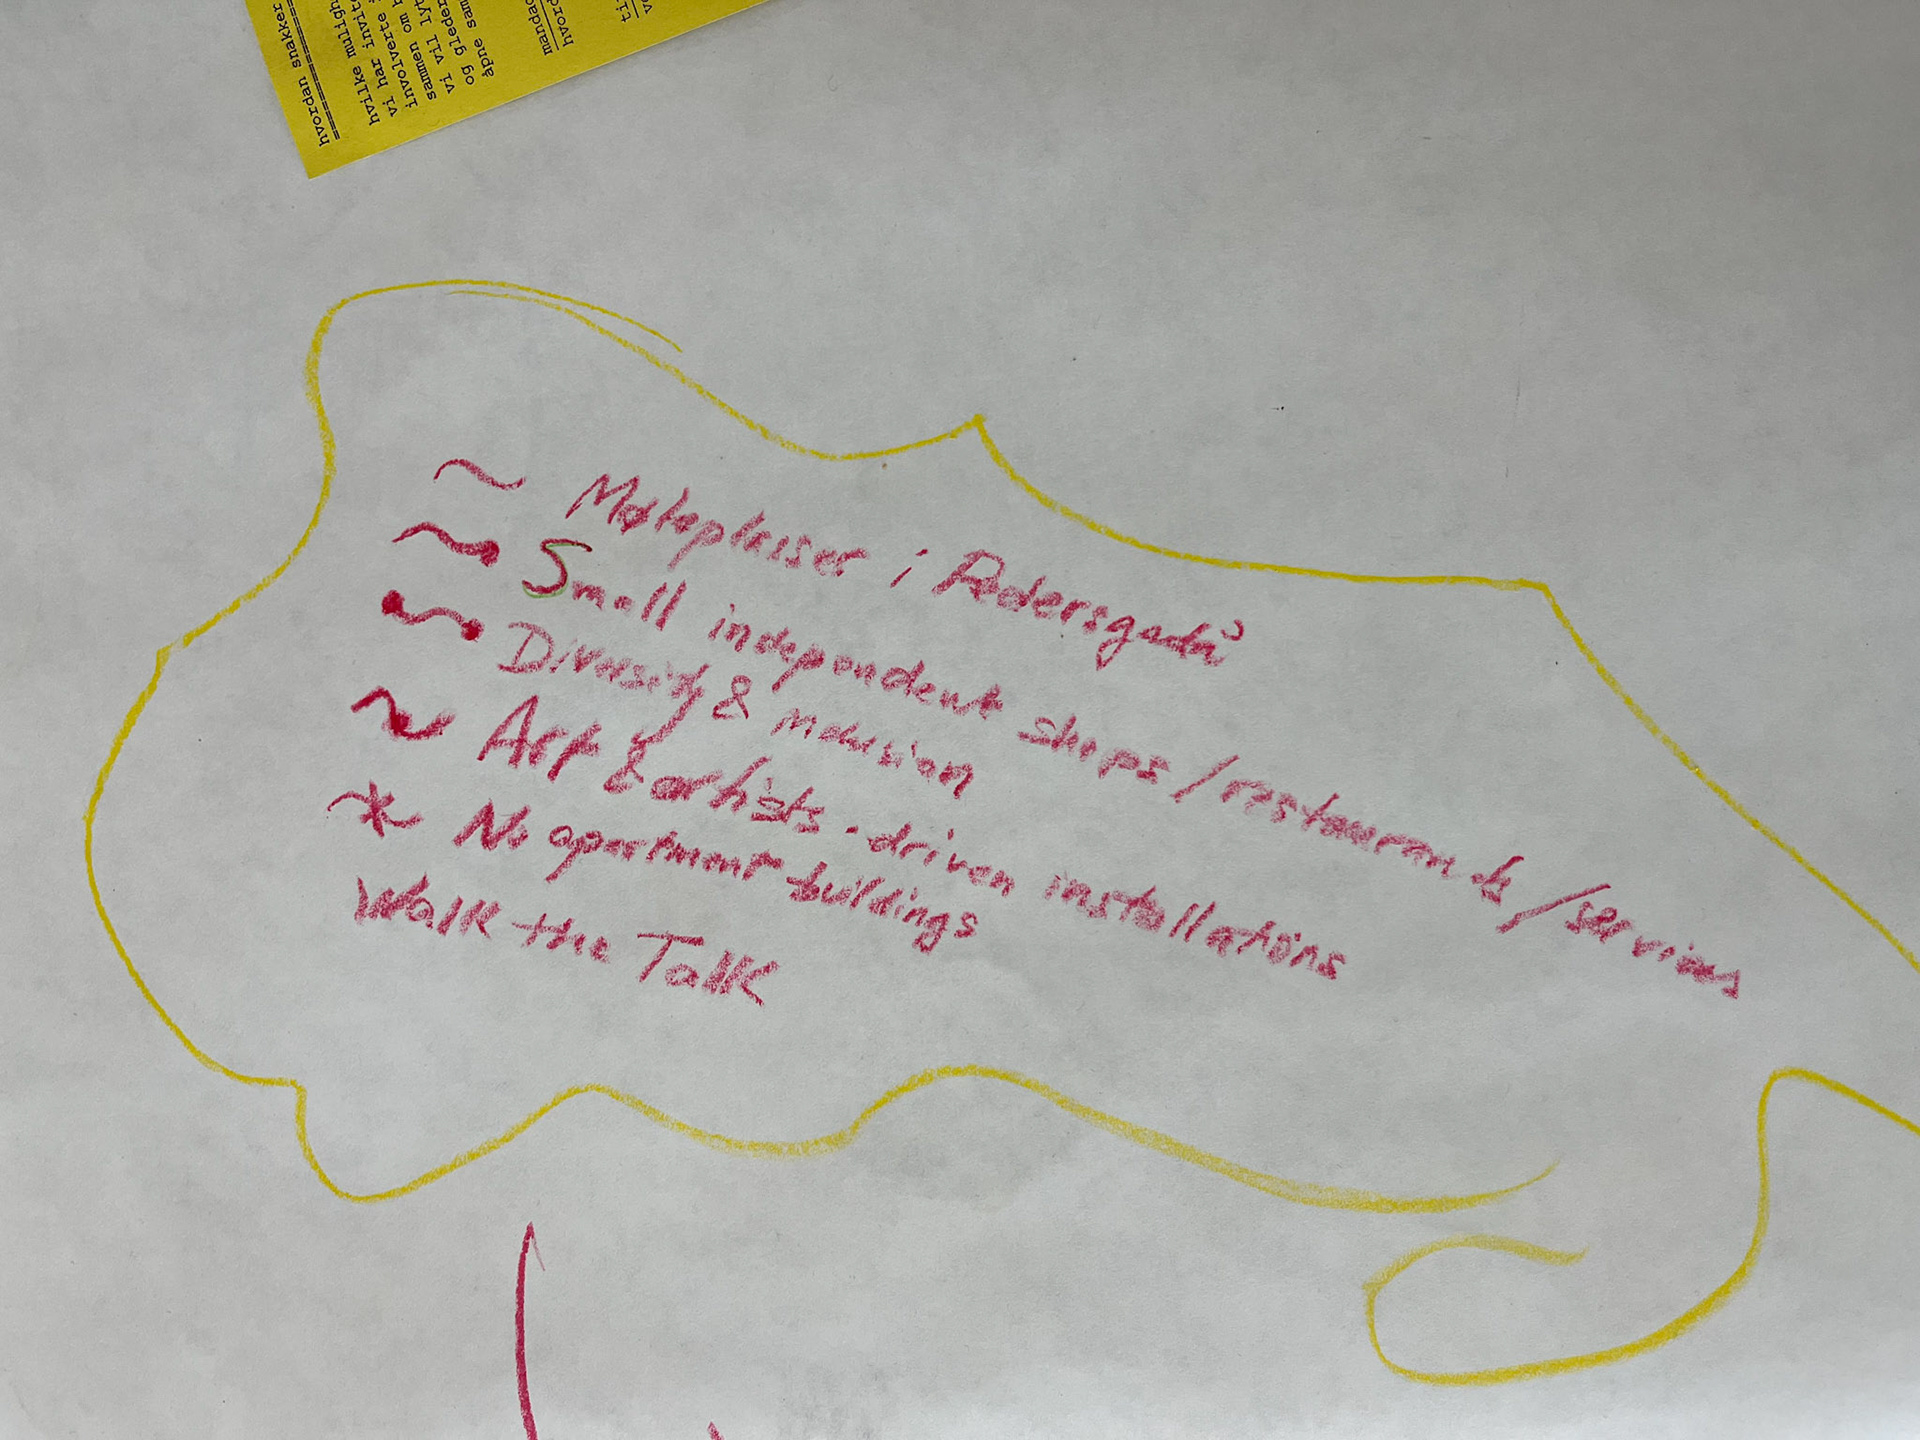 hvordan snakker
hvilke muligh
vi har invit
involverte
sammen om
vi vil lyt
og gleder
åpne sam
mandag
hvord
ti
~ Møteplasser i Pedersgatå
~ Small independent shops/restaurants/services
~ Diversity & inclusion
~ Art & artists-driven installations
* No apartment buildings
Walk the Talk